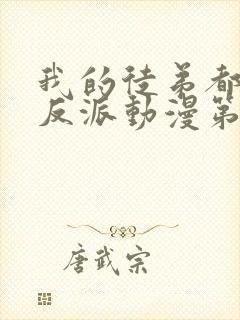 我的徒弟都
反派動漫第
唐武宗